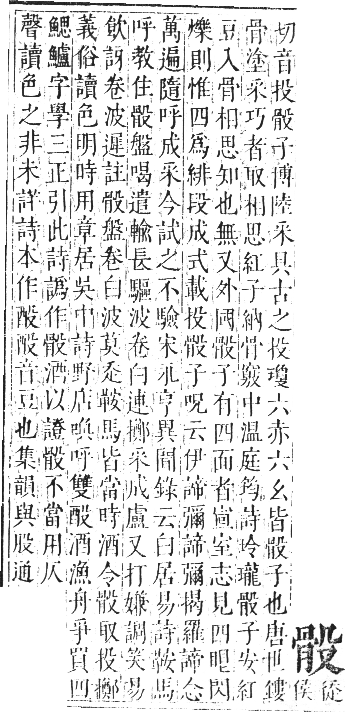 骰
從
侯
切音投骰子博陸采具古之投瓊六赤六幺皆骰子也唐世鏤
骨塗朱巧者取相思紅子納骨竅中温庭筠詩玲瓏骰子安紅
豆入骨相思知也無又外國骰子有四面者宣室志見四眼閃
爍則惟四爲緋段成式載投骰子呪云伊諦彌諦彌揭羅諦念
萬遍隨呼成采今試之不驗宋永亨異聞錄云白居易詩鞍馬
呼教住骰盤喝遣輸長驅波卷白連擲采成盧又打嫌調笑易
飲訝卷波遲註骰盤卷白波莫走鞍馬皆當時酒令骰取投擲
義俗讀色明時用章居吳中詩野店喚呼雙酘酒漁舟爭買四
鰓鱸字學三正引此詩譌作骰酒以證骰不當用仄
聲讀色之非未詳詩本作酘酘音豆也集韻與股通